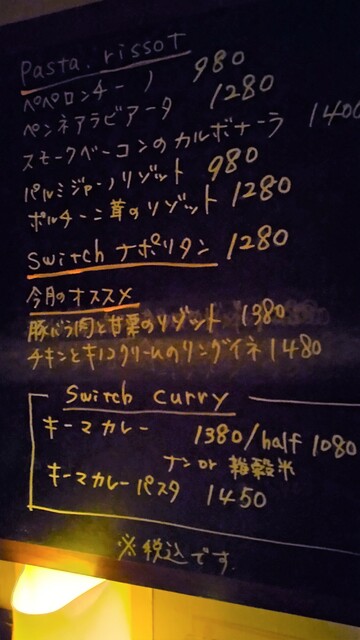 Pasta. rissot
ペペロンチーノ 980
ペンネアラビアータ 1280
スモークベーコンのカルボナーラ 1400
パルミジャーノリゾット 980
ポルチーニ茸のリゾット 1280
Switch ナポリタン 1280
今月のオススメ
豚バラ肉と甘栗のリゾット 1380
チキンとキノコクリームのリングイネ 1480
Switch curry
キーマカレー 1380/half 1080
ナン or 雑穀米
キーマカレーパスタ 1450
※税込です.